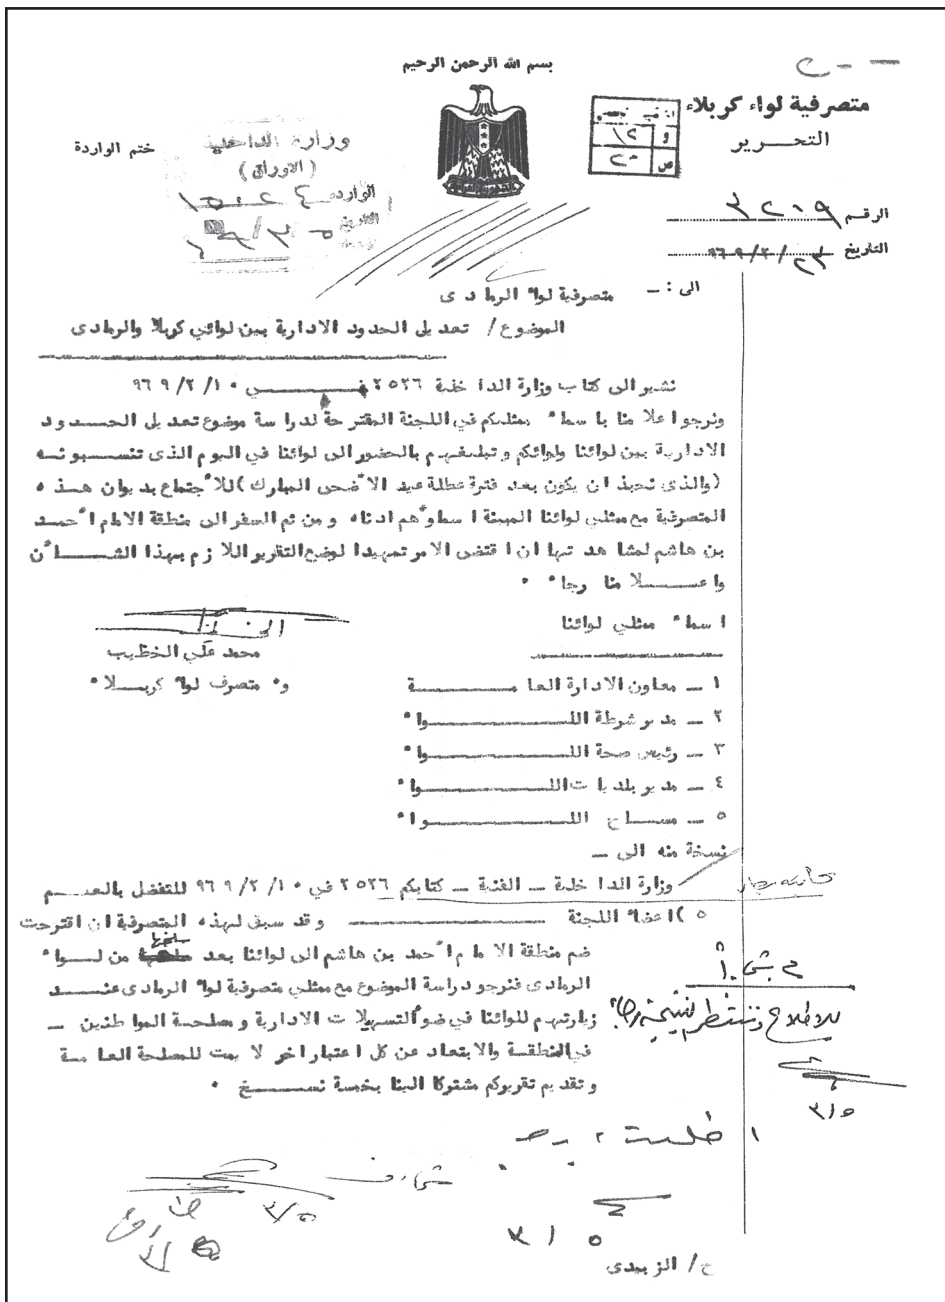 بسم الله الرحمن الرحيم
متصرفية لواء كربلاء
التحـــرير
و ١٢
ص ٢٠
ختم الواردة
وزارة الداخلية
(الاوراق)
الواردة
التاريخ
الرقم ٣٢٠٩
التاريخ ٢٣/٢/٩٦٩
الى : ـ متصرفية لواء الرمادى
الموضوع / تعديل الحدود الادارية بين لوائي كربلاء والرمادى
نشير الى كتاب وزارة الداخلية ٢٥٢٦ فـــــي ١٠/٢/٩٦٩
ونرجوا علامنا باسماء ممثليكم في اللجنة المقترحة لدراسة موضوع تعديل الحـــدود
الادارية بين لوائنا ولوائكم وتبليغهم بالحضور الى لوائنا في اليوم الذى تنســـبونه
(والذى نحبذ ان يكون بعد فترة عطلة عيد الاضحى المبارك) للأجتماع بديوان هـــذه
المتصرفية مع ممثلي لوائنا المبينة اسماؤهم ادناه ومن ثم السفر الى منطقة الامام أحمـــد
بن هاشم لمشاهدتها ان اقتضى الامر تمهيدا لوضع التقرير اللازم بهذا الشـــــأن
واعـــلامنا رجاء ٠
اسماء ممثلي لوائنا
محمد علي الخطيب
و٠ متصرف لواء كربـــلاء
١ ـ معاون الادارة العامـــــة
٢ ـ مدير شرطة اللـــــواء
٣ ـ رئيس صحة اللـــــواء
٤ ـ مدير بلديات اللـــــواء
٥ ـ مســـاح اللـــــواء
نسخة منه الى ـ
وزارة الداخلية ـ الفنية ـ كتابكم ٢٥٢٦ في ١٠/٢/٩٦٩ للتفضل بالعلـــم
٥) اعضاء اللجنة ـــــــ وقد سبق لهذه المتصرفية ان اقترحت
ضم منطقة الامام أحمد بن هاشم الى لوائنا بعد سلخها من لـــواء
الرمادى فنرجو دراسة الموضوع مع ممثلي متصرفية لواء الرمادى عنـــد
زيارتهم للوائنا في ضوء التسهيلات الادارية ومصلحة المواطنين ـ
في المنطقة والابتعاد عن كل اعتبار اخر لا يمت للمصلحة العامـــة
وتقديم تقريركم مشتركا الينا بخمسة نســــخ ٠
للاطلاع وننتظر النتيجة رجاء
٣/٥
٣/٥
٣/٥
ح/ الزبيدى